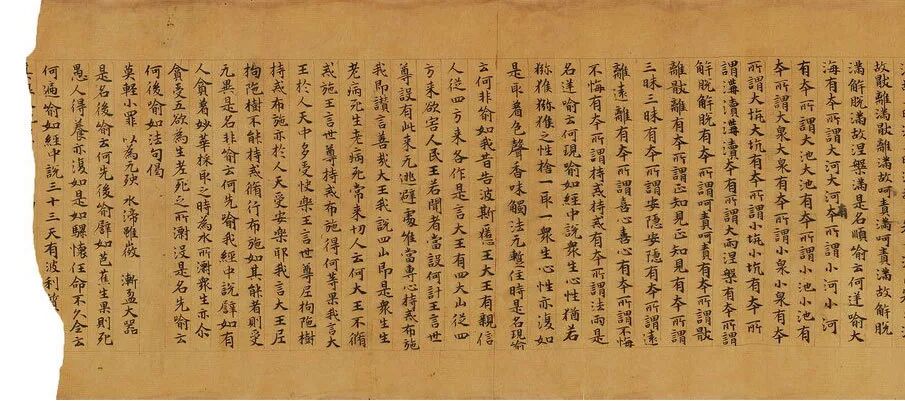 故猒離滿猒離滿故呵責滿呵責滿故解脫
滿解脫滿故涅槃滿是名順喻云何逆喻大
海有本所謂大河大河有本所謂小河小河
有本所謂大池大池有本所謂小池小池有
本所謂大泉大泉有本所謂小泉小泉有本
所謂大坑大坑有本所謂小坑小坑有本所
謂溝瀆溝瀆有本所謂大雨涅槃有本所謂
解脫解脫有本所謂呵責呵責有本所謂猒
離猒離有本所謂正知見正知見有本所謂
三昧三昧有本所謂安隱安隱有本所謂遠
離遠離有本所謂喜心喜心有本所謂不悔
不悔有本所謂持戒持戒有本所謂法雨是
名逆喻云何現喻如經中說衆生心性猶若
猕猴猕猴之性捨一取一衆生心性亦復如
是取著色聲香味觸法无暫住時是名現喻
云何非喻如我昔告波斯匿王大王有親信
人從四方来各作是言大王有四大山從四
方来欲害人民王若聞者當設何計王言世
尊設有此来无逃避處唯當專心持戒布施
我即讚言善哉大王我說四山即是衆生生
老病死生老病死常来切人云何大王不脩
戒施王言世尊持戒布施得何等果我言大
王於人天中多受快樂王言世尊尼拘陁樹
持戒布施亦於人天受安樂耶我言大王尼
拘陁樹不能持戒脩行布施如其能者則受
无異是名非喻云何先喻我經中說譬如有
人貪著妙華採取之時為水所漂衆生亦尒
貪著五欲為生老死之所漂沒是名先喻云
何後喻如法句偈
莫輕小罪以為无殃 水渧雖微 漸盈大器
是名後喻云何先後喻譬如芭蕉生果則死
愚人得養亦復如是如騾懷任命不久全云
何遍喻如經中說三十三天有波利質